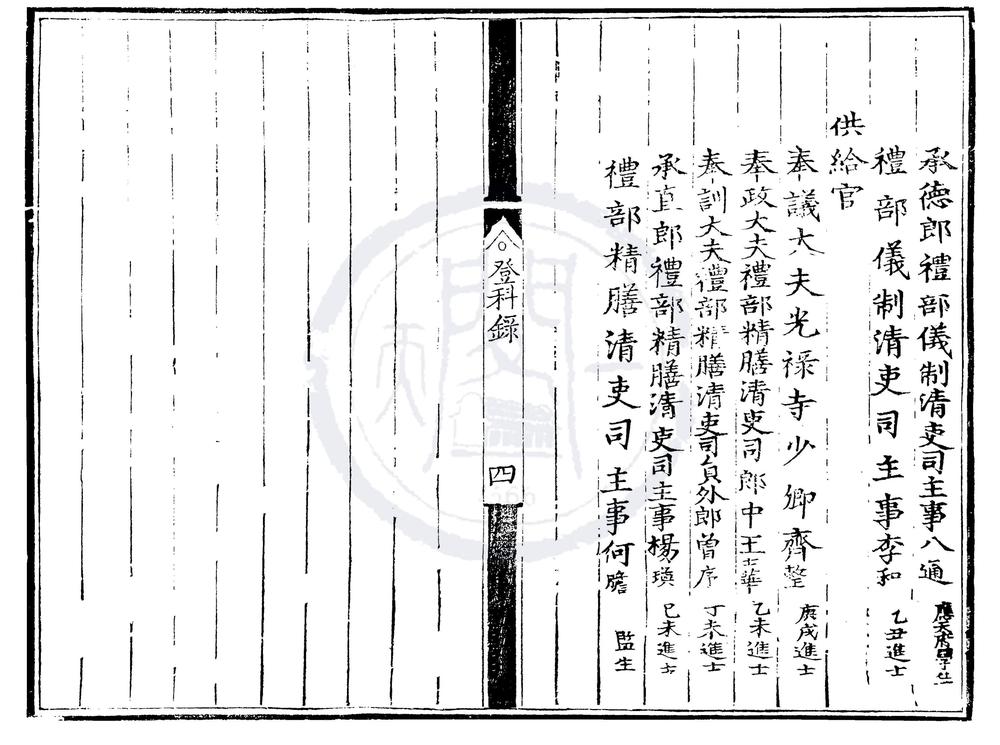 承德郎禮部儀制清吏司主事八通 應天府學生
禮部儀制清吏司主事李和 乙丑進士
供給官
奉議大夫光祿寺少卿齊整 庚戌進士
奉政大夫禮部精膳清吏司郎中王士華 乙未進士
奉訓大夫禮部精膳清吏司員外郎曾序 丁未進士
承直郎禮部精膳清吏司主事楊瑛 己未進士
禮部精膳清吏司主事何瞻 監生
登科錄
四